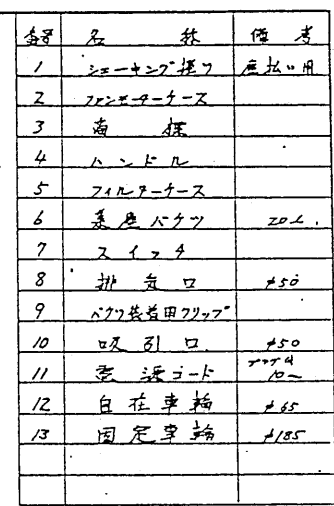 番号 名称 備考
1 シェーキング握り 塵払い用
2 ファンモーターケース
3 本体
4 ハンドル
5 フィルターケース
6 集塵バケツ 20L.
7 スイッチ
8 排気口 φ50
9 バケツ装着用クリップ
10 吸引口 φ50
11 電源コード 10m
12 自在車輪 φ65
13 固定車輪 φ185